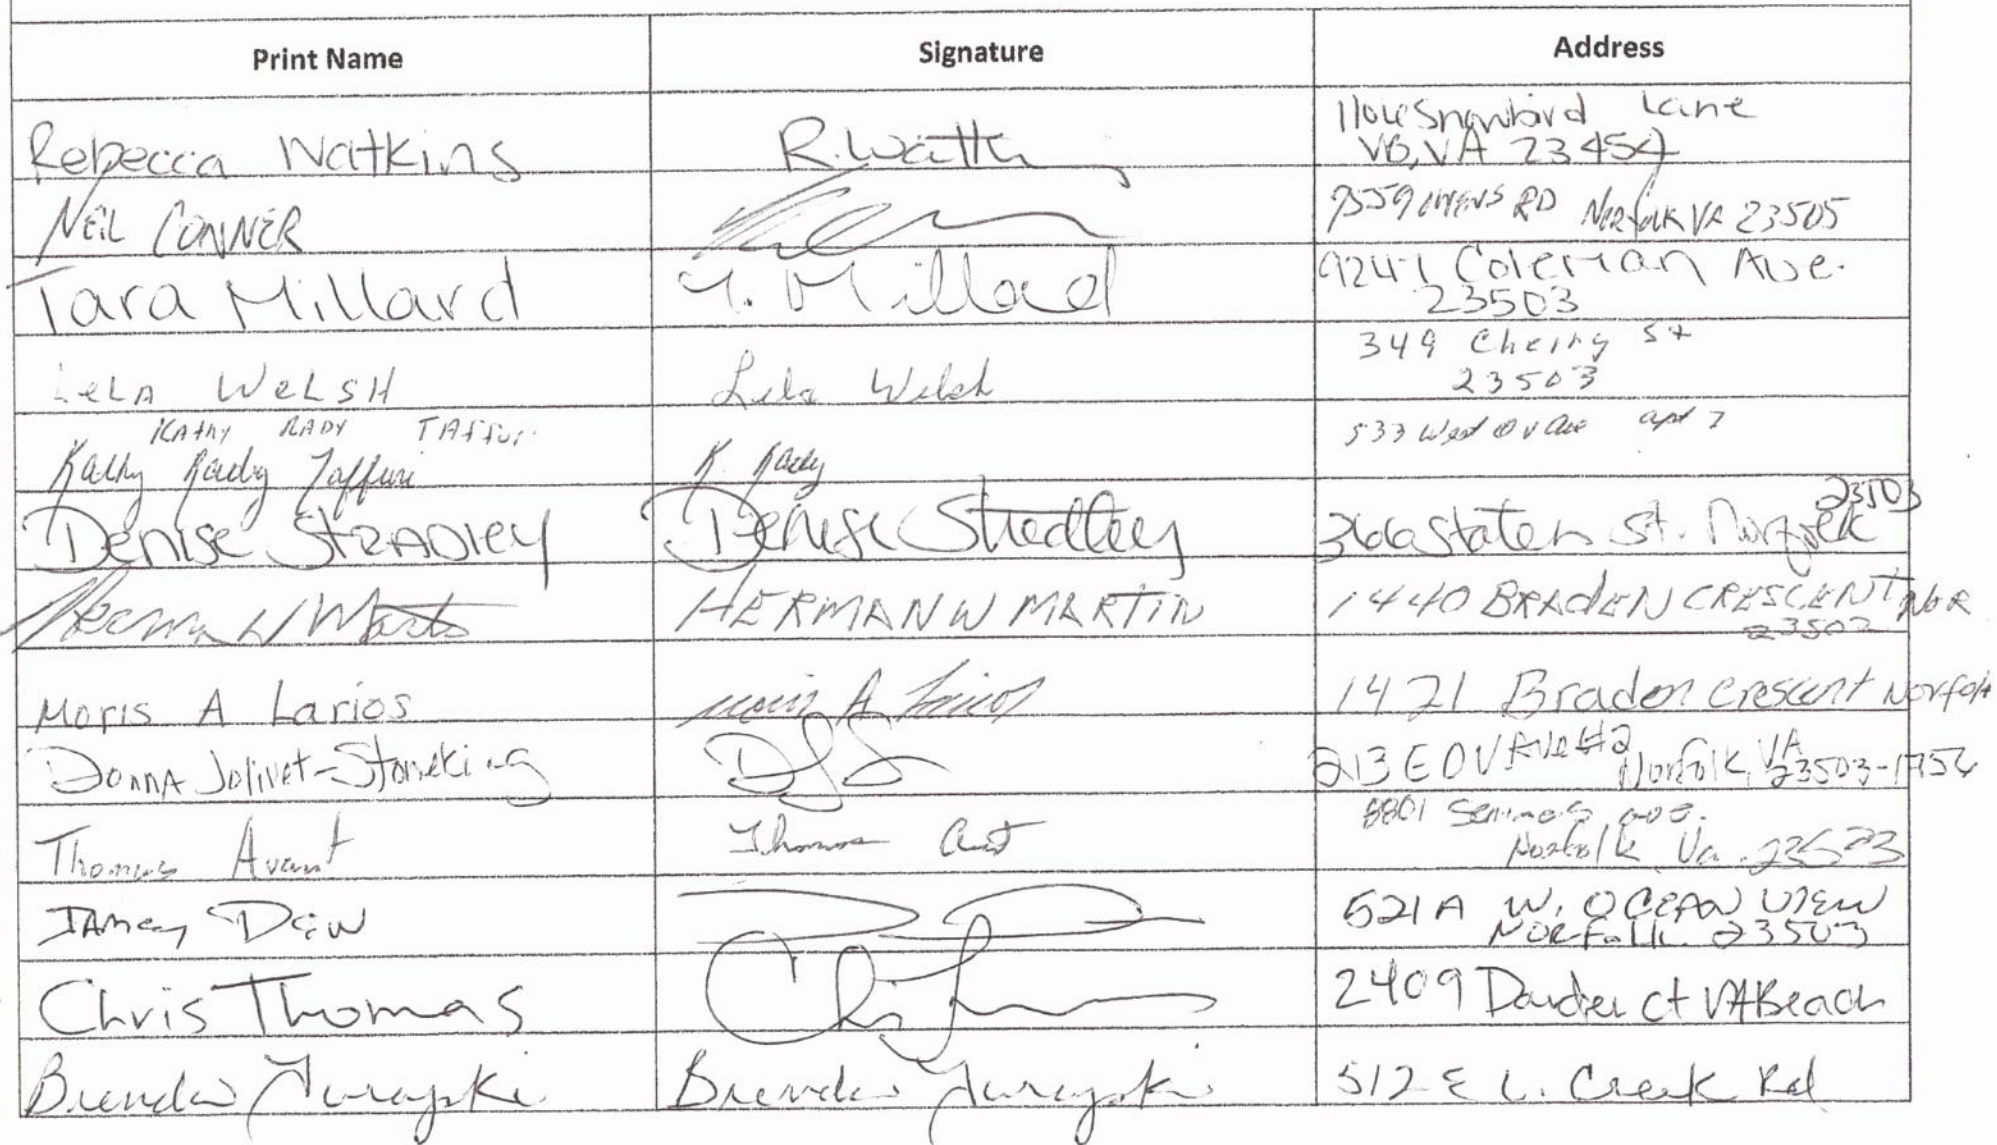 Print Name Signature Address
Rebecca Watkins R. Watk 1104 Snowbird Lane
VB, VA 23454
NEIL CONNER 7559 OWENS RD NORFOLK VA 23505
Tara Millard T. Millard 9247 Coleman Ave.
23503
LeLA WeLSH Lela Welsh 349 Cherry St
23503
KAthy RADY TAFFURI 533 West O V Ave apt 7
Kathy Rady Taffuri K Rady
Denise STRADley Denise Stradley 366 Staten St. Norfolk
23503
Herman W Martin HERMAN W MARTIN 1440 BRAdEN CRESCENT NOR
23502
Moris A Larios Moris A Larios 1421 Braden crescent Norfolk
Donna Jolivet-Stoneking DJS 213 E OV Ave #2
Norfolk, VA
23503-1756
Thomas Avant Thomas Avant 8801 ave.
Norfolk Va. 23503
JAmey DEW 521A W. OCEAN VIEW
NORFolk 23503
Chris Thomas Chris 2409 Ct VA Beach
Brenda Brenda 512 E L. Creek Rd